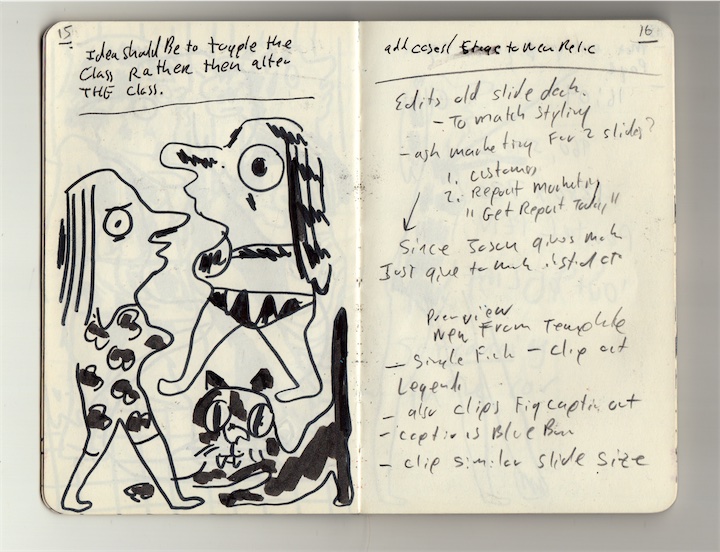 15
Idea should Be to toggle the
Class Rather then alter
THE Class.
16
add cases/ to New Relic
Edits old slide deck.
- To match Styling
- ask marketing For 2 slides?
1. customers
2. Report Marketing
"Get Report Today"
Since Jason gives
Just give to instead of
Preview
New From Template
- Single Fich - Clip out
Legend
- also clips Fig caption out
- caption is Blue Box
- clip similar slide size